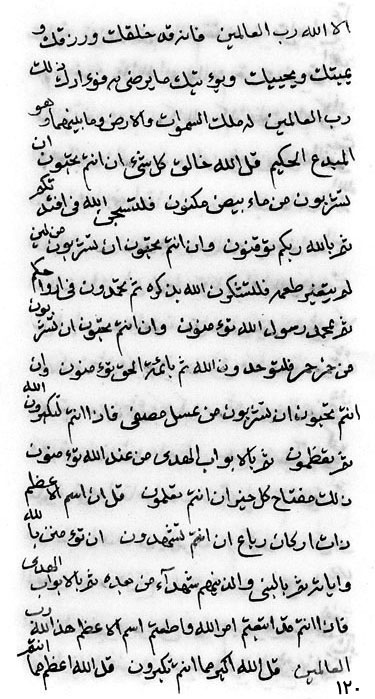 الا الله رب العالمين فانه قد خلقك ورزقك و
يميتك ويحييك ويؤتيك ما يرضى به فؤادك ذلك
رب العالمين له ملك السموات والارض وما بينهما وهو
المبدع الحكيم قل الله خالق كل شئ ان انتم تحبون ان
تشربون من ماء بيض مكنون الله فى افئدتكم
ثم بالله ربكم توقنون وان انتم تحبون ان تشربون من لبن
لم يتغير طعمه فلتشكرن الله بذكره ثم تحمدون فى ارواحكم
ثم بمحمد رسول الله تؤمنون وان انتم تحبون ان تشربون
من خمر حمر فلتوحدون الله ثم بائمة الحق تؤمنون وان
انتم تحبون ان تشربون من عسل مصفى فاذا انتم لتكبرون الله
ثم تعظمون ثم بالابواب الهدى من عند الله تؤمنون
ذلك مفتاح كل خير ان انتم تعلمون قل ان اسم الاعظم
ذات اركان رباع ان انتم تشهدون ان تؤمنن بالله
واياته ثم بالنبى والذينهم شهدآء من بعده ثم بالابواب الهدى
فاذا انتم قد اتبعتم امر الله واطعتم اسم الاعظم هذ الله رب
العالمين قل الله اكبر عما انتم تكبرون قل الله اعظم عما انتم
١٢٠